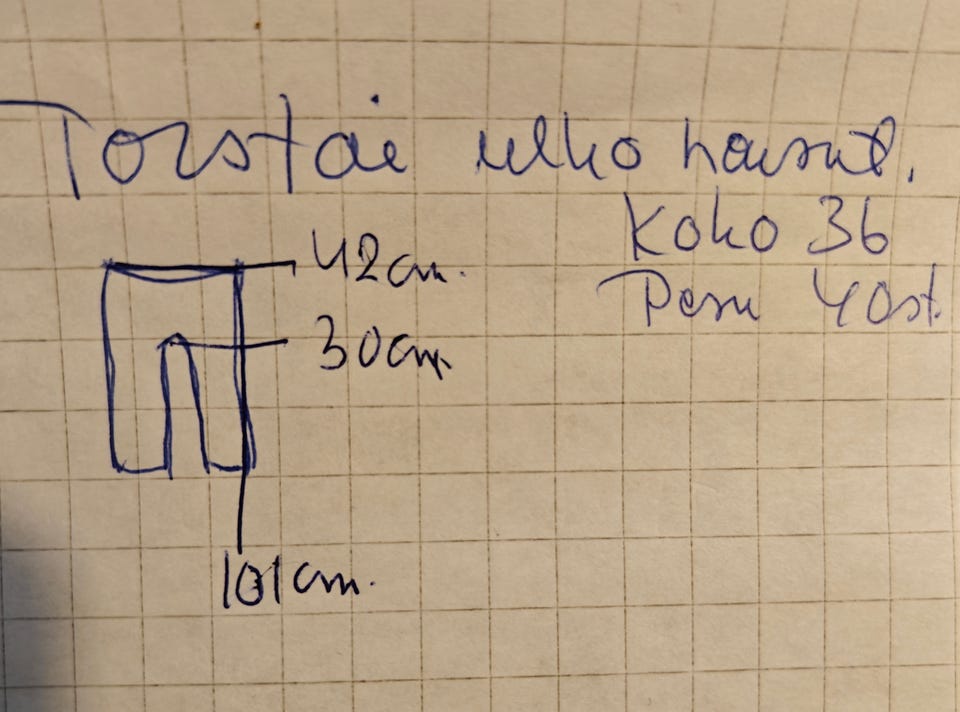 Torstai ulko housut.
Koko 36
Pesu 40st.
42cm.
30cm.
101cm.